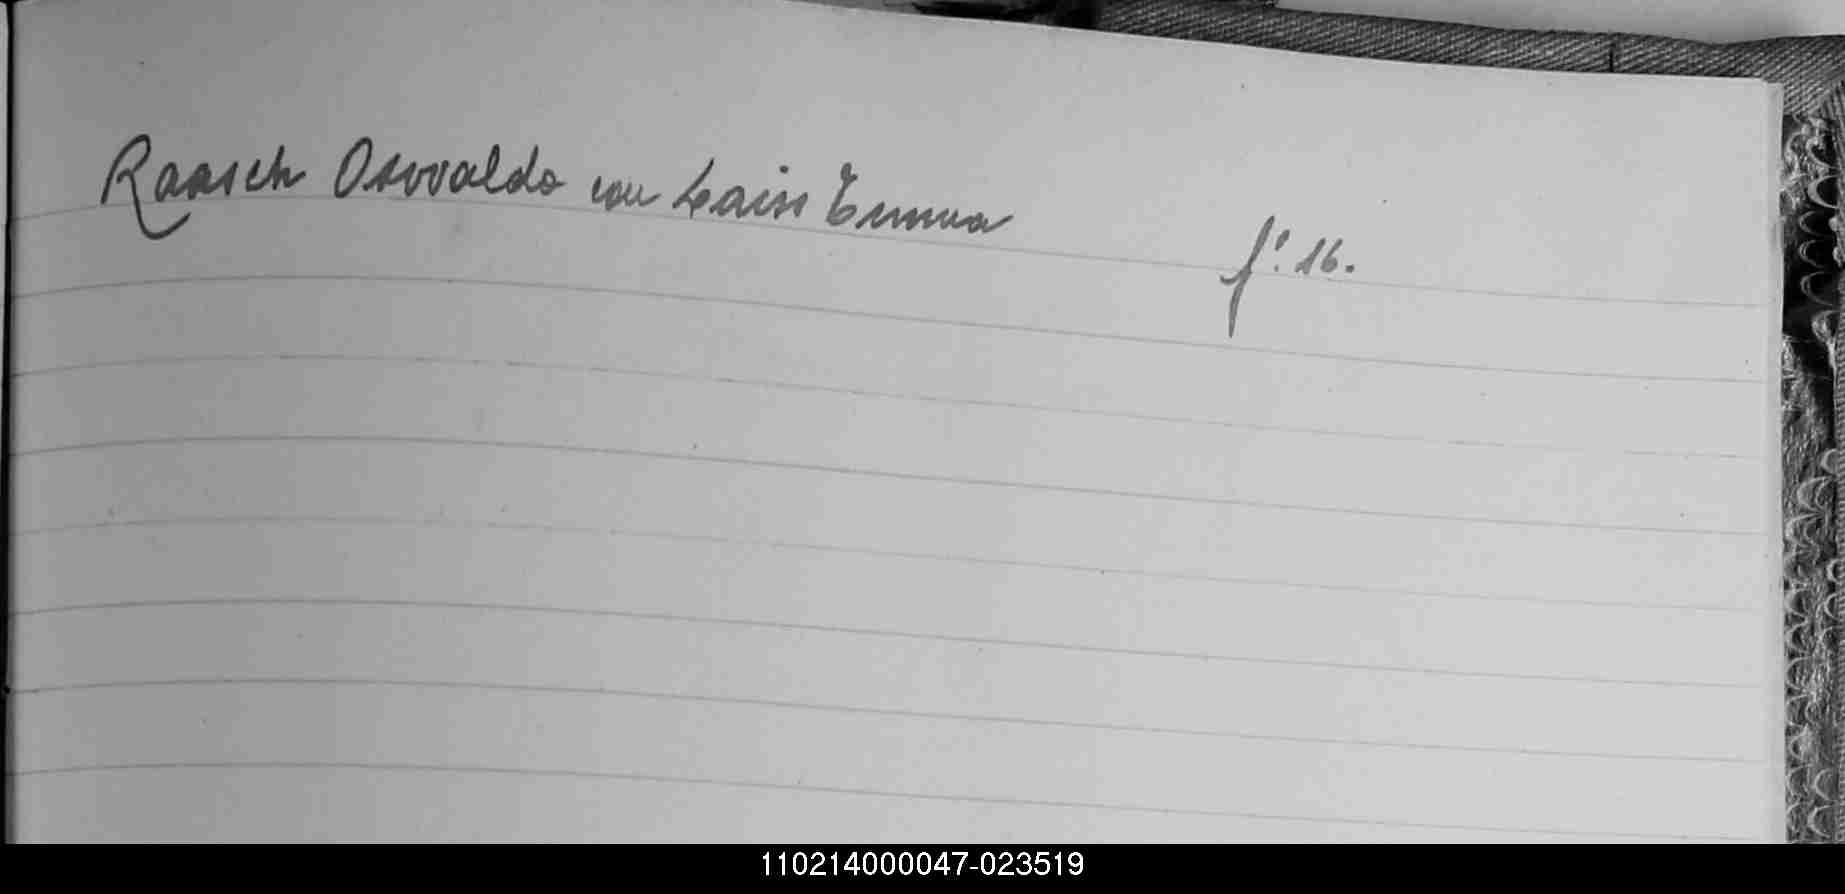 Raasch Osvaldo con Laiss Emma f: 16.
110214000047-023519